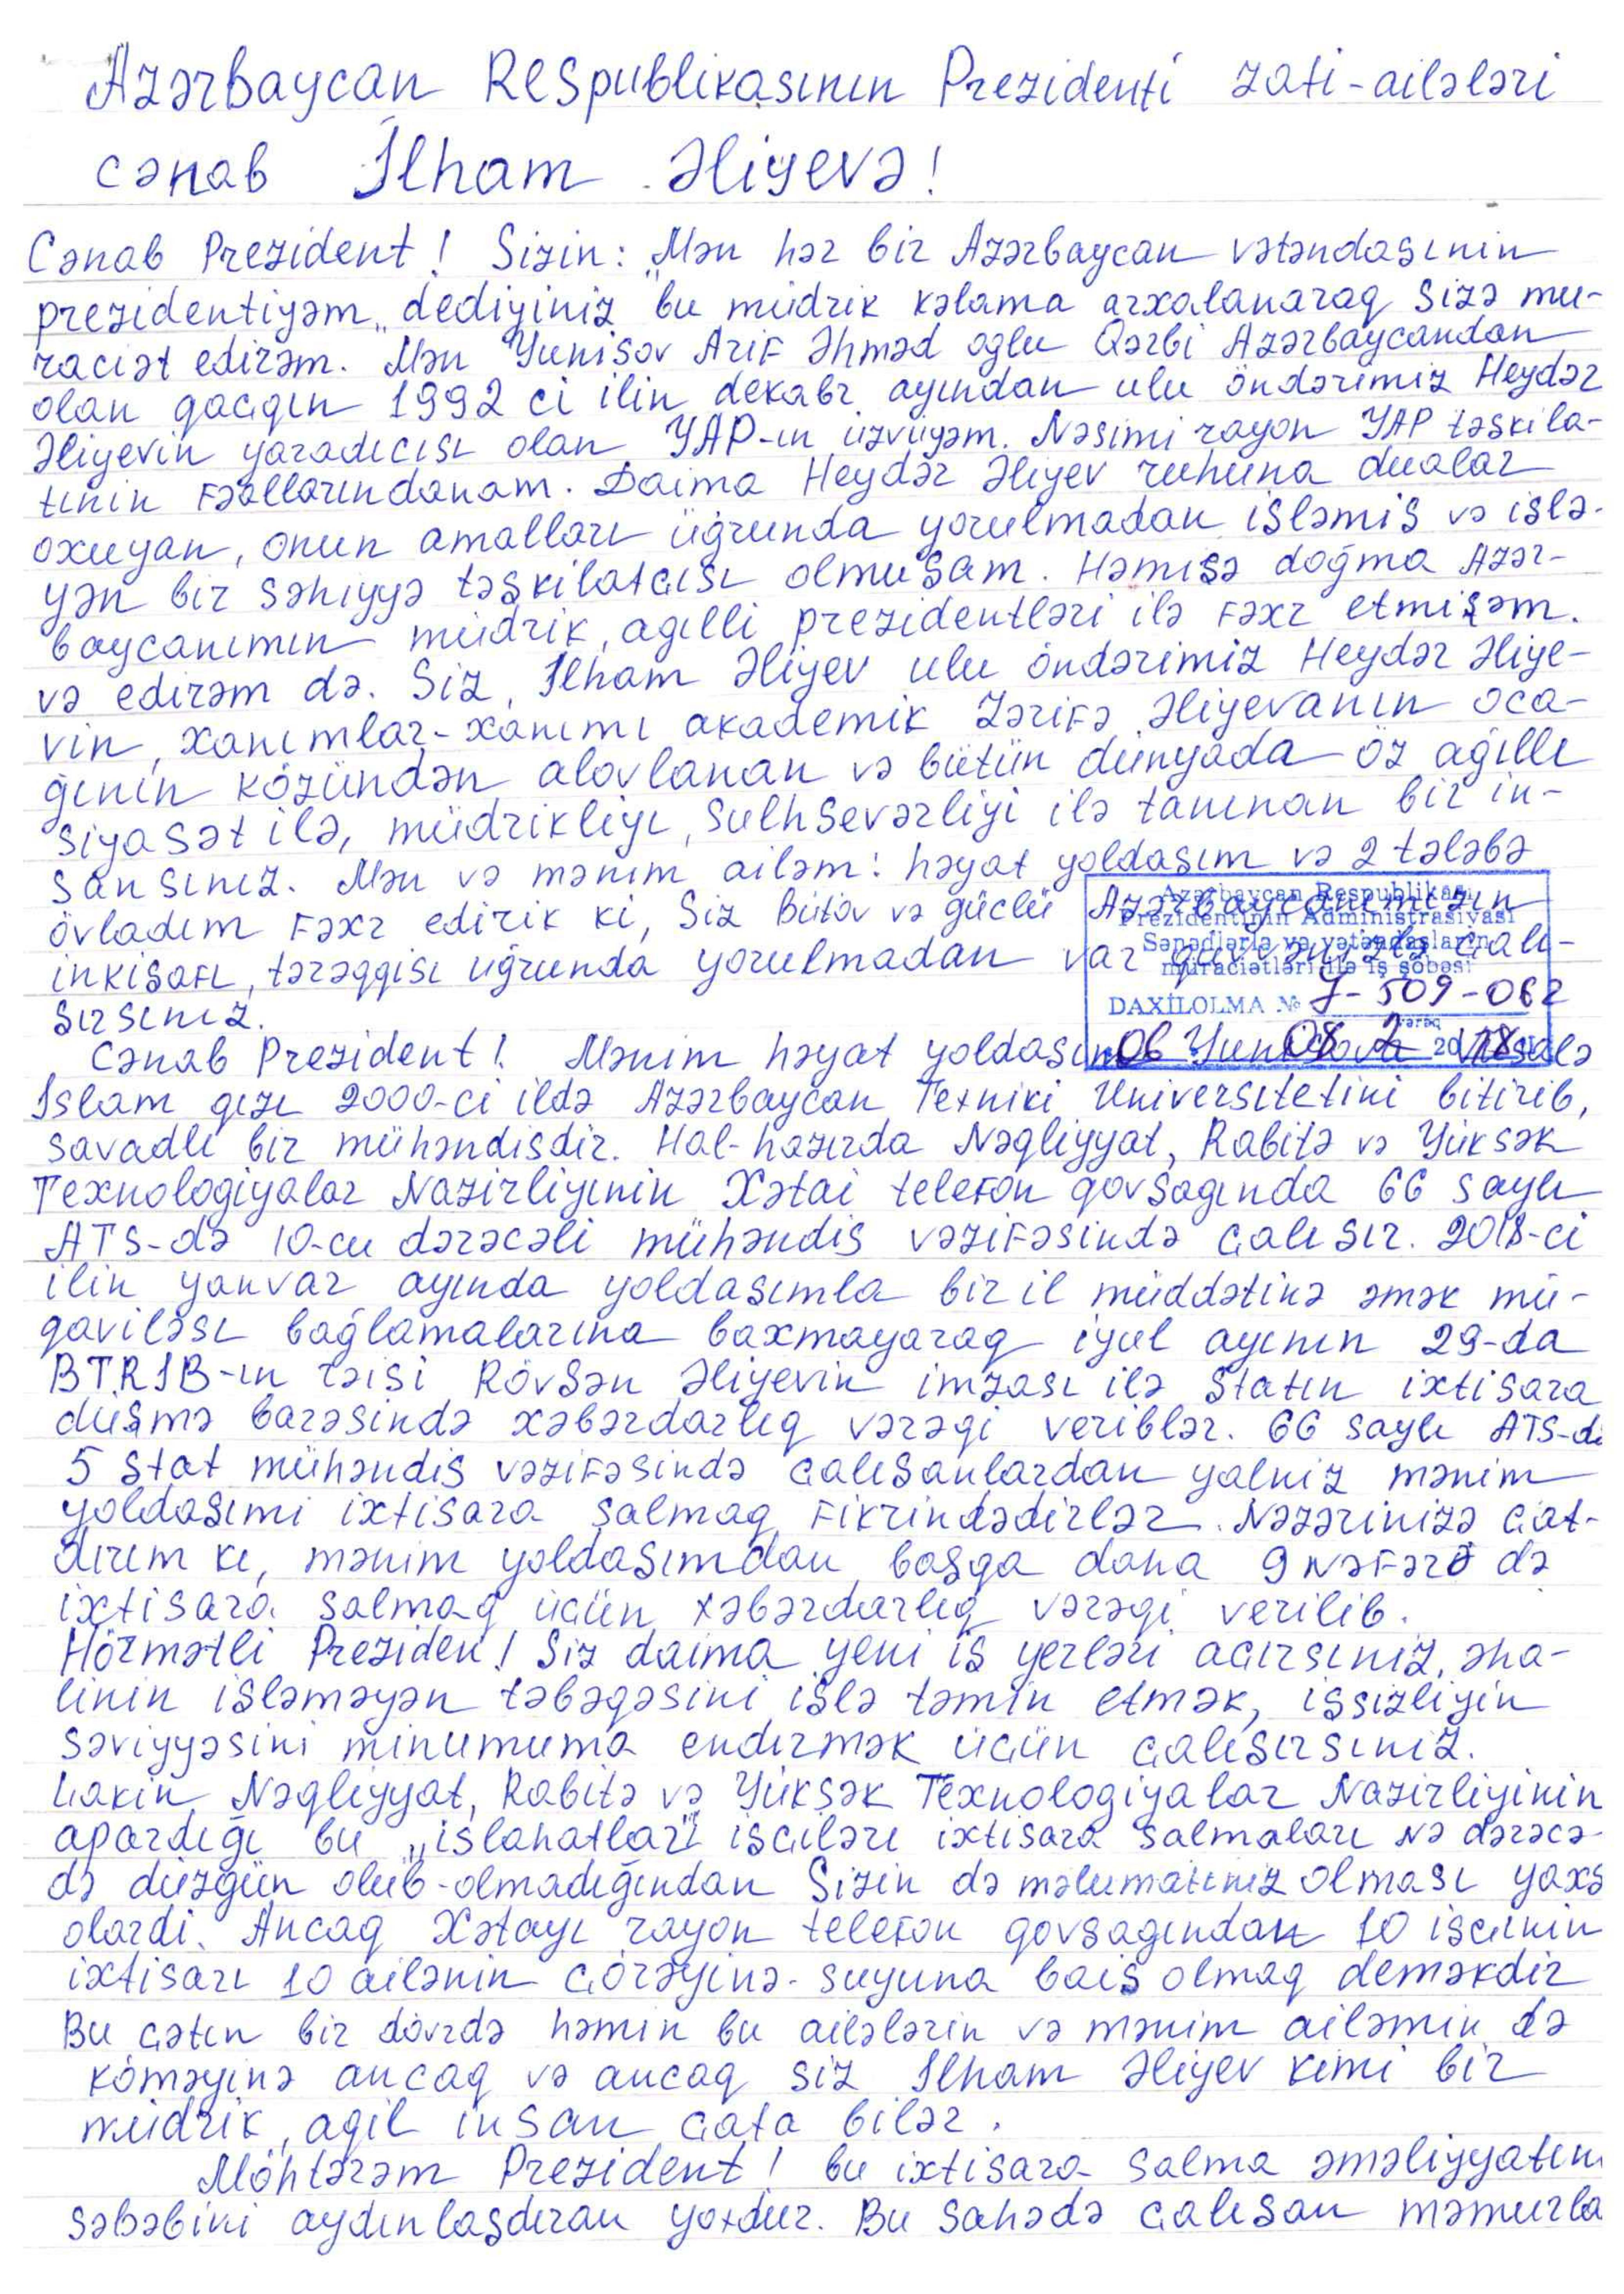 Azərbaycan Respublikasının Prezidenti zati-ailələri
cənab İlham Əliyevə!
Cənab Prezident! Sizin: „Mən hər bir Azərbaycan vətəndaşının
prezidentiyəm„ dediyiniz bu müdrik kəlama arxalanaraq Sizə mu-
raciət edirəm. Mən Yunisov Arif Əhməd oglu Qərbi Azərbaycandan
olan qaçqın 1992 ci ilin dekabr ayından ulu öndərimiz Heydər
Əliyevin yaradıcısı olan YAP-ın üzvüyəm. Nəsimi rayon YAP təşkila-
tının Fəallarındanam. Daima Heydər Əliyev ruhuna dualar
oxuyan, onun amalları üğrunda yorulmadan işləmiş və işlə-
yən bir səhiyyə təşkilatçısı olmuşam. Həmişə doğma Azər-
baycanımın müdrik, agıllı prezidentləri ilə Fəxr etmişəm.
və edirəm də. Siz, İlham Əliyev ulu öndərimiz Heydər Əliye-
vin, xanımlar-xanımı akademik Zərifə Əliyevanın oca-
ğının közündən alovlanan və bütün dünyada öz ağıllı
siyasət ilə, müdrikliyi, sulhsevərliyi ilə tanınan bir in-
sansınız. Mən və mənim ailəm: həyat yoldaşım və 2 tələbə
övladım Fəxr edirik ki, Siz Bütöv və güclü Azərbaycanımızın
inkişafı, tərəqqisi uğrunda yorulmadan var qüvvənizlə çalı-
şırsınız.
Azərbaycan Respublikası
Prezidentinin Administrasiyası
Sənədlərlə və vətəndaşların
müraciətləri ilə iş şöbəsi
DAXİLOLMA № J-509-062
2 vərəq
06 08 2018
Cənab Prezident! Mənim həyat yoldaşım Yunisova Vüsalə
İslam qızı 2000-ci ildə Azərbaycan Texniki Universitetini bitirib,
savadlı bir mühəndisdir. Hal-hazırda Nəqliyyat, Rabitə və Yüksək
Texnologiyalar Nazirliyinin Xətai telefon qovşagında 66 saylı
ATS-də 10-cu dərəcəli mühəndis vəzifəsində çalışır. 2018-ci
ilin yanvar ayında yoldaşımla bir il müddətinə əmək mü-
qaviləsi bağlamalarına baxmayaraq iyul ayının 29-da
BTRİB-ın rəisi Rövşən Əliyevin imzası ilə ştatın ixtisara
düşmə barəsində xəbərdarlıq vərəqi veriblər. 66 saylı ATS-də
5 ştat mühəndis vəzifəsində çalışanlardan yalnız mənim
yoldaşımı ixtisara salmaq Fikrindədirlər. Nəzərinizə çat-
dırım ki, mənim yoldaşımdan başqa daha 9 nəfərə də
ixtisara salmaq üçün xəbərdarlıq vərəqi verilib.
Hörmətli Preziden! Siz daima yeni iş yerləri açırsınız, əha-
linin işləməyən təbəqəsini işlə təmin etmək, işsizliyin
səviyyəsini minumuma endirmək üçün çalışırsınız.
Lakin Nəqliyyat, Rabitə və Yüksək Texnologiyalar Nazirliyinin
apardığı bu „islahatlar" işçiləri ixtisara salmaları nə dərəcə-
də düzgün olub-olmadığından Sizin də məlumatınız olması yaxş
olardi. Ancaq Xətayi rayon telefon qovşagından 10 işçinin
ixtisarı 10 ailənin çörəyinə-suyuna bais olmaq deməkdir
Bu çətin bir dövrdə həmin bu ailələrin və mənim ailəmin də
köməyinə ancaq və ancaq siz İlham Əliyev kimi bir
müdrik, agil insan çata bilər.
Möhtərəm Prezident! bu ixtisara salma əməliyyatın
səbəbini aydınlaşdıran yoxdur. Bu sahədə çalışan məmurla